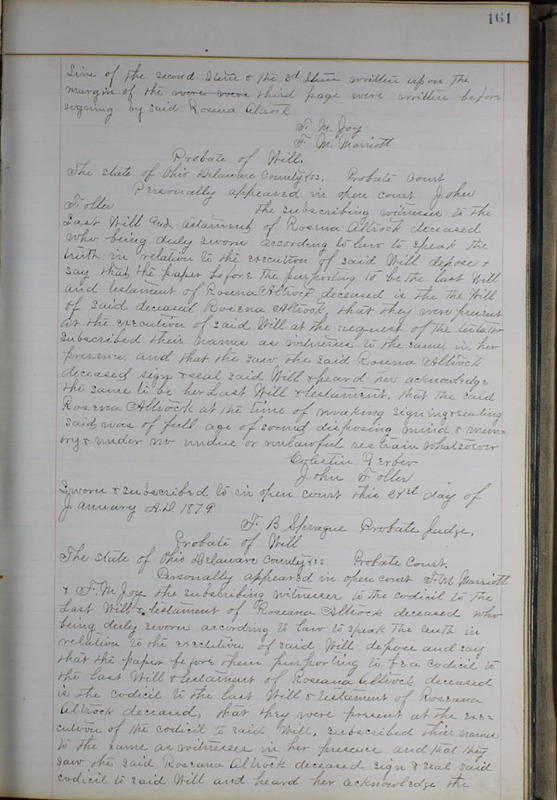 161
Line of the second Item & the 3d Item written upon the
margin of the were were third page were written before
signing by said Rosena Altrock
F. M. Joy
F. M. Marriott
Probate of Will.
The State of Ohio Delaware County ss. Probate Court
Personally appeared in open court John
Foller the subscribing witnesses to the
Last Will and testament of Rosena Altrock deceased
who being duly sworn according to law to speak the
truth in relation to the execution of said Will depose &
say that the paper before the purporting to be the last Will
and testament of Rosena Altrock deceased is the the Will
of said deceased Rosena Altrock, that they were present
at the execution of said Will at the request of the testator
subscribed their names as witnesses to the same, in her
presence and that the saw the said Rosena Altrock
deceased sign & seal said Will & heard her acknowledge
the same to be her Last Will & testament. that the said
Rosena Altrock at the time of making signing & sealing
said, was of full age of sound disposing mind & mem-
ory & under no undue or unlawful restrain whatsoever
Celestin Gerber
John Foller
Sworn & subscribed to in open court this 31st day of
January A.D. 1879
F. B Sprague Probate Judge,
Probate of Will
The State of Ohio Delaware County ss Probate Court,
Personally appeared in open court F. M. Marriott
& F. M. Joy the subscribing witnesses to the codicil to the
Last Will & testament of Roseana Altrock deceased who
being duly sworn according to law to speak the truth in
relation to the execution of said Will depose and say
that the paper before open purporting to be a codicil to
the last Will & testament of Roseana Altrock deceased
is the codicil to the last Will & testament of Roseana
Altrock deceased, that they were present at the exe-
cution of the codicil to said Will, subscribed their names
to the same as witnesses in her presence and that they
saw the said Roseana Altrock deceased sign & seal said
codicil to said Will and heard her acknowledge the